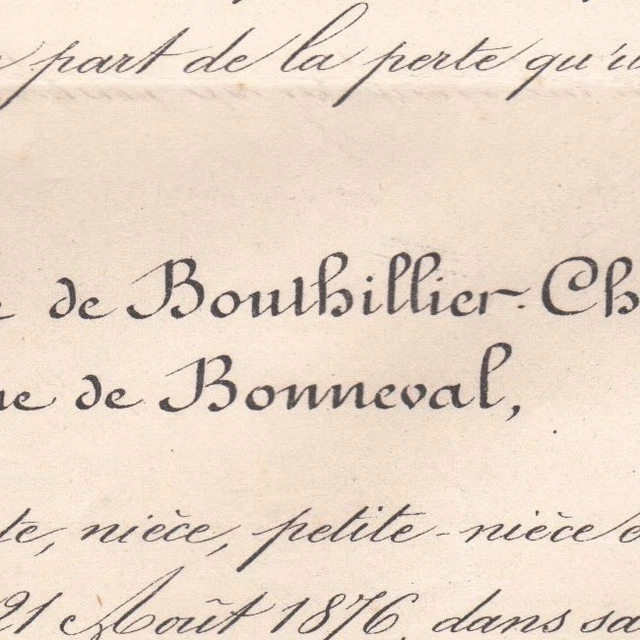 part de la perte qu'i
de Bouthillier-Ch
ue de Bonneval,
te, nièce, petite-nièce
21 Août 1876, dans sa